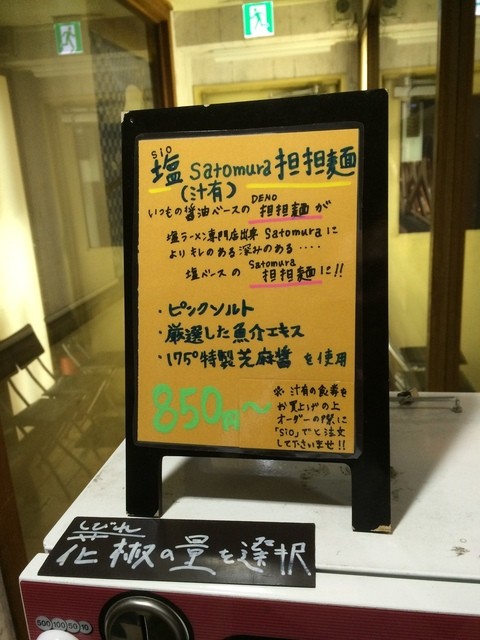 sio
塩 Satomura 担担麺
(汁有)
DENO
いつもの醤油ベースの 担担麺が
塩ラーメン専門店出身 Satomuraに
よりキレのある深みのある‥‥
Satomura
塩ベースの 担担麺に!!
・ピンクソルト
・厳選した魚介エキス
・175°特製芝麻醤 を使用
850円〜
※ 汁有の食券を
お買上げの上
オーダーの際に
「sio」でと注文
して下さいませ!!
しびれ
花椒の量を選択
500 100 50 10